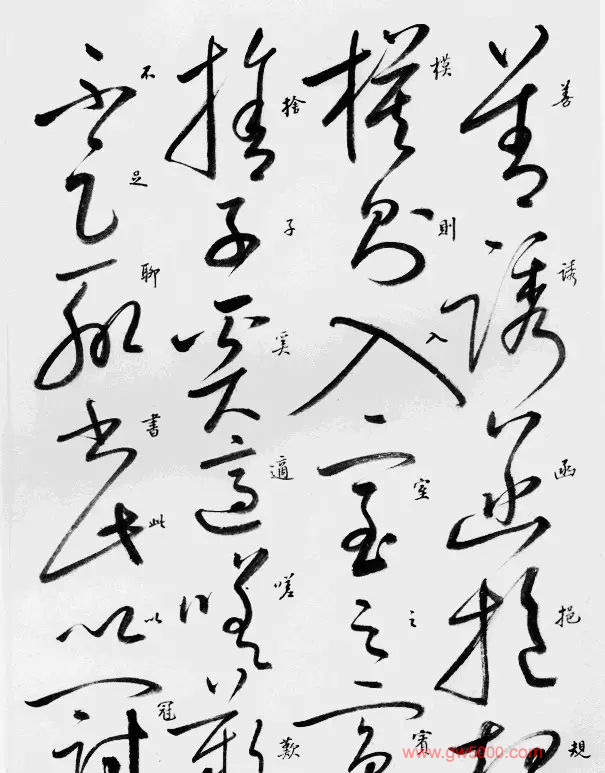 善誘函挹規
模則入室之賓
捨子奚適嗟歎
不足聊書此以冠
www.gw5000.com